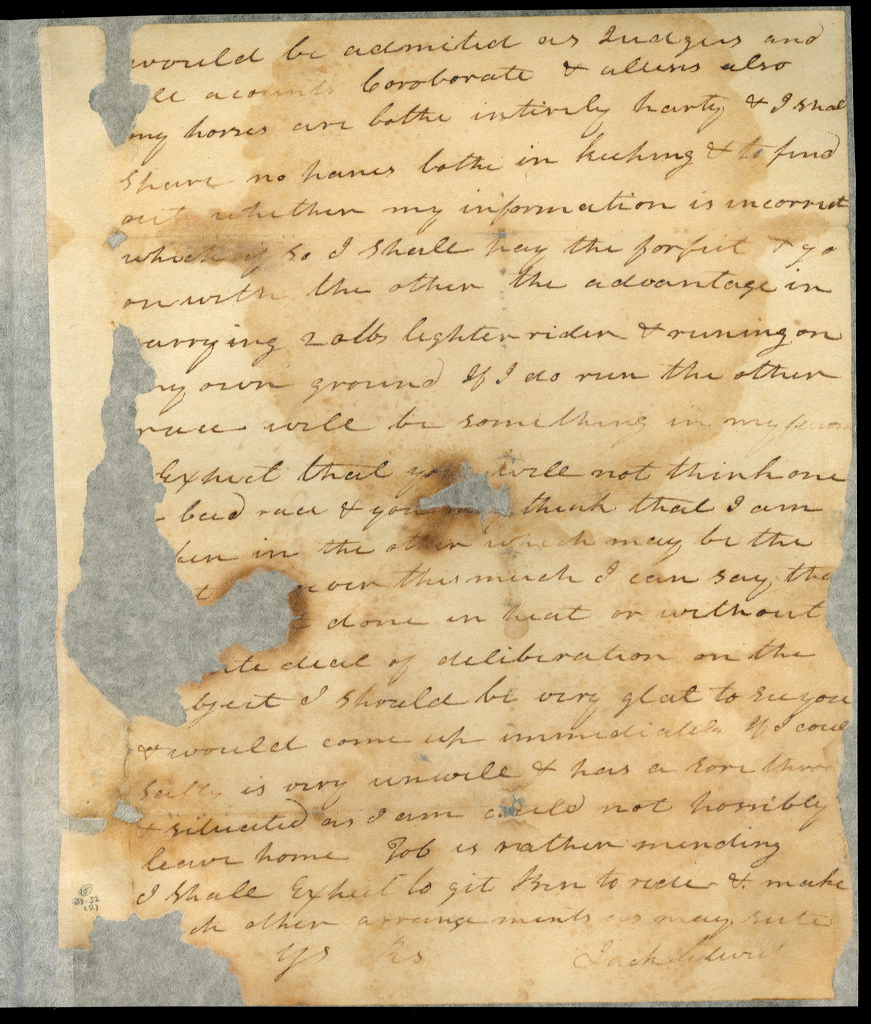 would be admited as Judges and
acounts Coroborate & allens also
my horses are bothe intirely harty & I shal
spare no panes bothe in keeping & to find
out whether my information is incorrect
which if so I shall pay the forfeit & go
on with the other the advantage in
arrying 20 lbs lighter rider & runing on
my own ground If I do run the other
race will be something in my
Expect that you will not think one
bad race & you think that I am
in the other which may be the
ever this much I can say tha
done in heat or without
deal of deliberation on the
bject I should be very glad to see you
& would come up immediately If I coul
Sally is very unwell & has a sore thro
& situated as I am could not possibly
leave home Bob is rather mending
I shall Expect to git Ben to ride & make
other arrangements as may sute
Ys Rs Jack